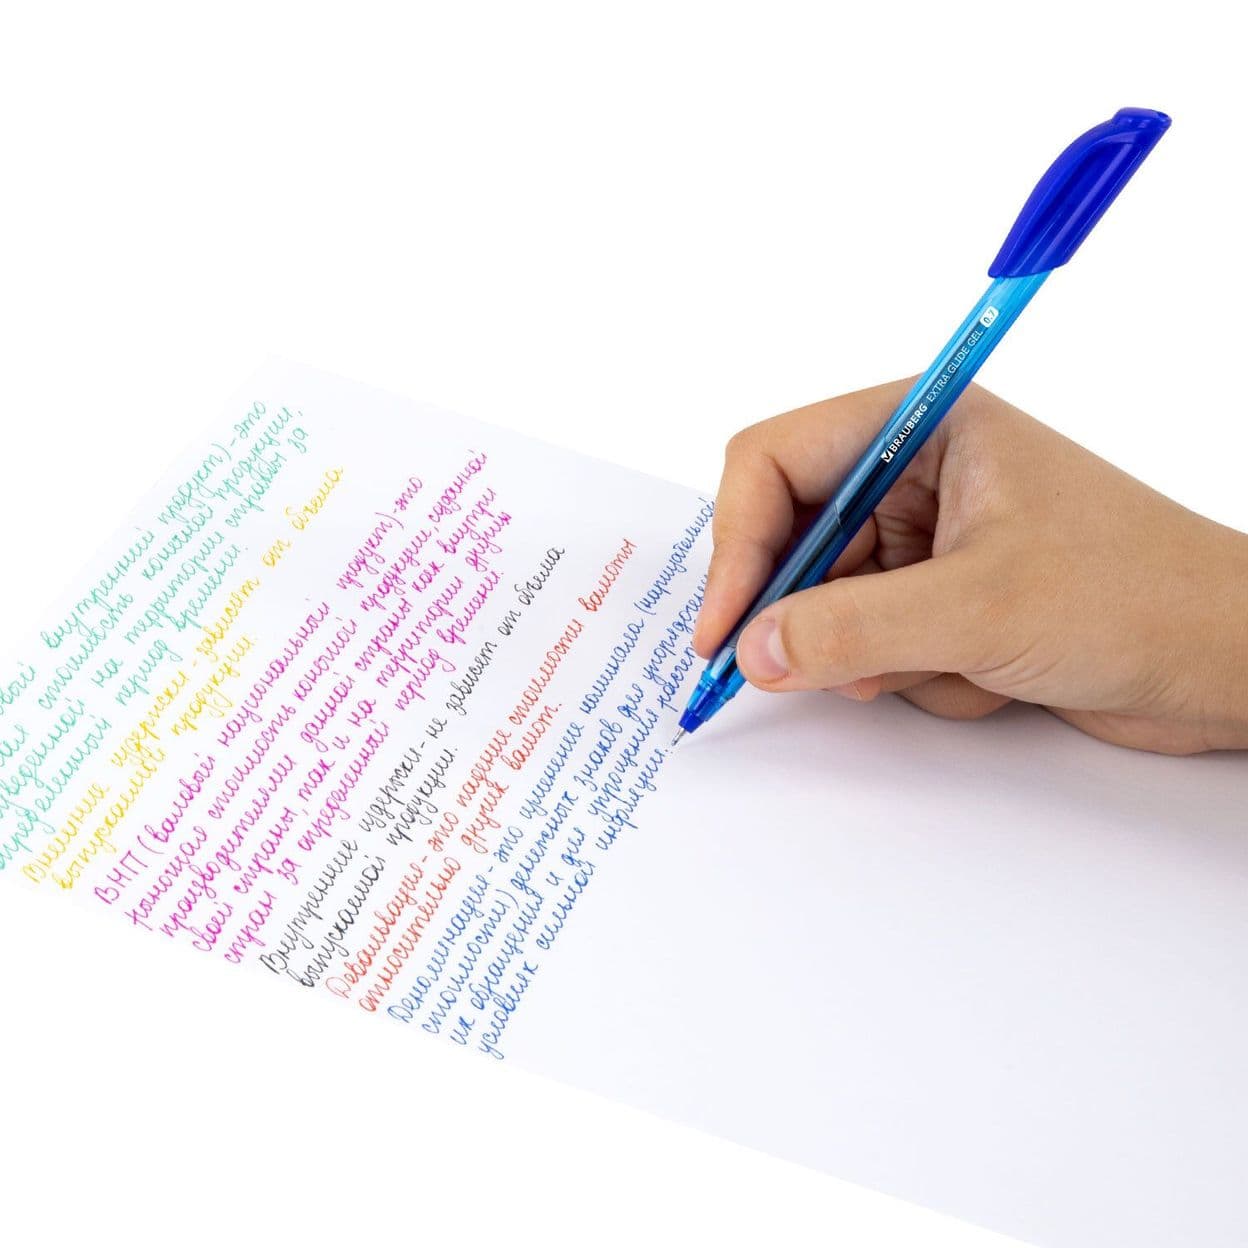 внутренний продукт) - это
стоимость конечной продукции,
на территории страны за
определенный период времени.
Внешние издержки - зависят от объема
выпускаемой продукции.
ВНП (валовый национальный продукт) это
стоимость конечной продукции, созданной
производителями данной страны как внутри
своей страны, так и на территории других
стран за определенный период времени.
Внутренние издержки - не зависят от объема
выпускаемой продукции.
Девальвация - это падение стоимости валюты
относительно других валют.
Деноминация - это изменение номинала (нарицательной
стоимости) денежных знаков для упорядочения
их обращения и для упрощения расчет
условиях сильной инфляции.
BRAUBERG EXTRA GLIDE GEL 0.7